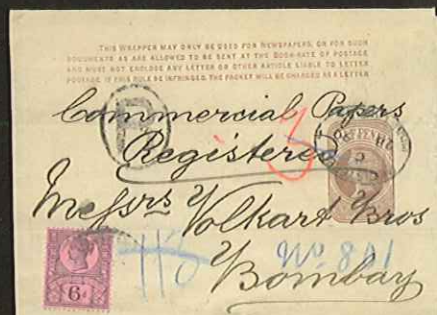 THIS WRAPPER MAY ONLY BE USED FOR NEWSPAPERS, OR FOR SUCH
DOCUMENTS AS ARE ALLOWED TO BE SENT AT THE BOOK-RATE OF POSTAGE
AND MUST NOT ENCLOSE ANY LETTER OR OTHER ARTICLE LIABLE TO LETTER
POSTAGE. IF THIS RULE BE INFRINGED, THE PACKET WILL BE CHARGED AS A LETTER
Commercial Papers
R
Registered
Messrs Volkart Bros
No 801
Bombay
6d